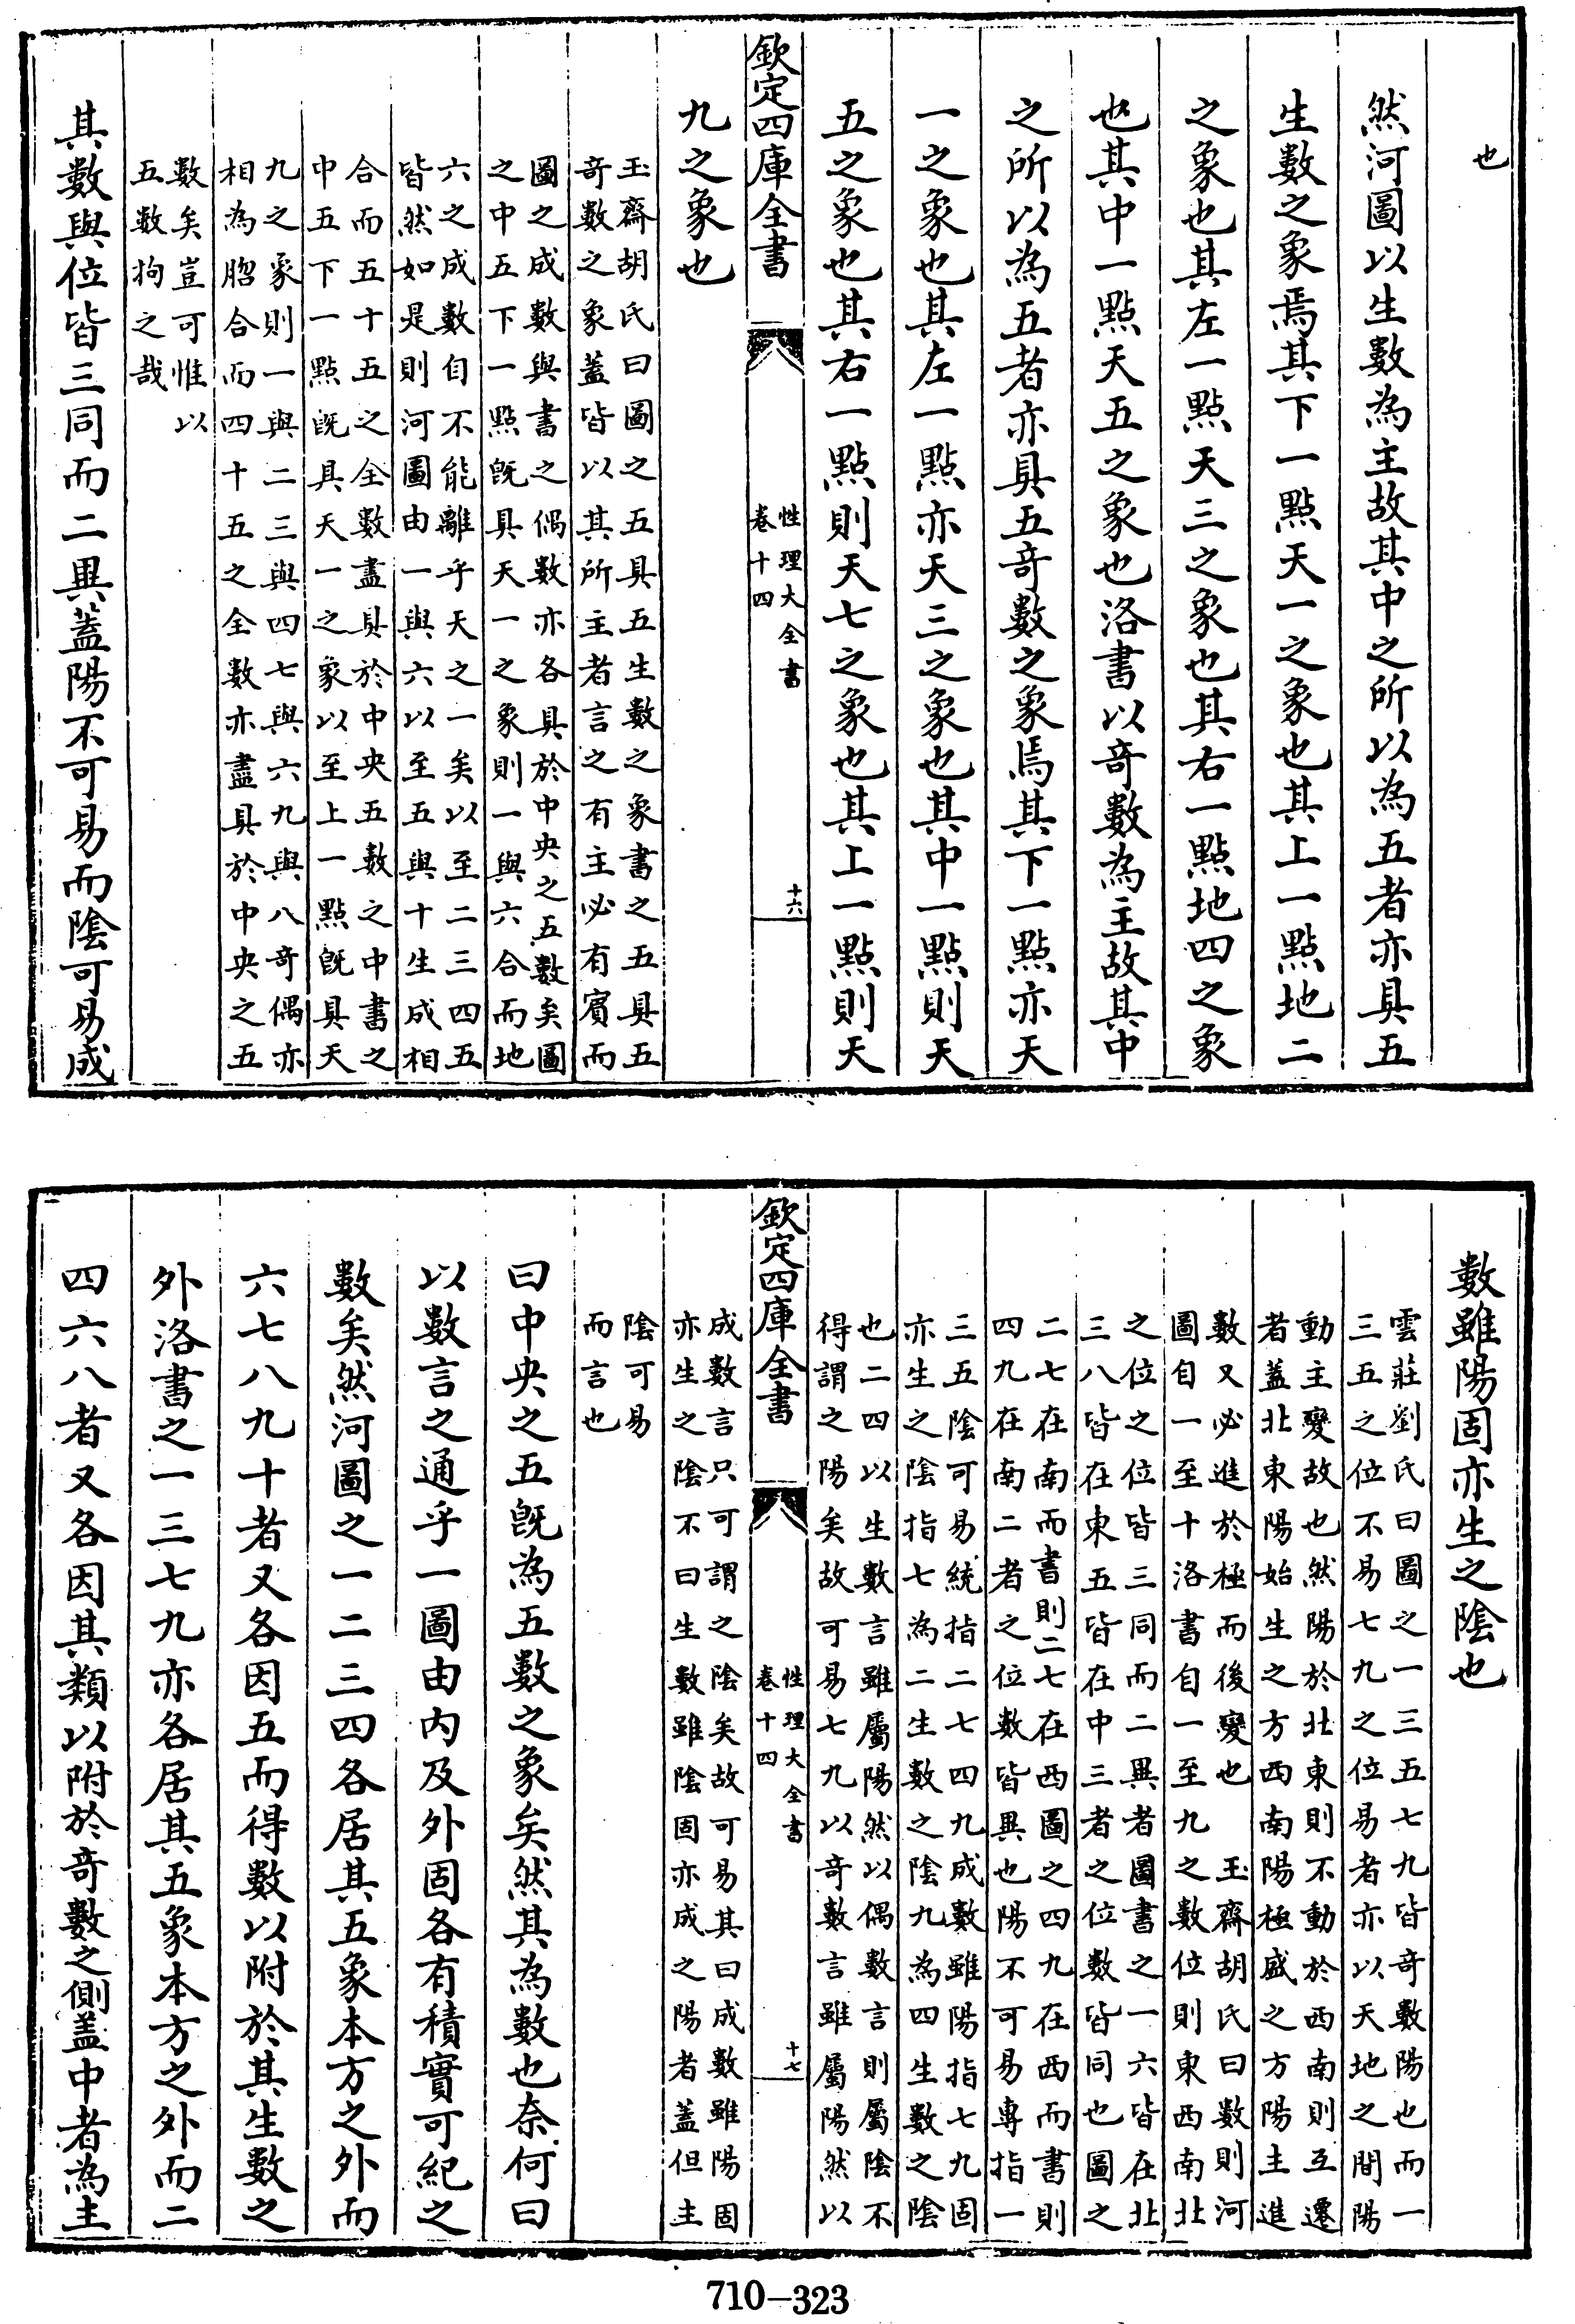 也
然河圖以生數為主故其中之所以為五者亦具五
生數之象焉其下一點天一之象也其上一點地二
之象也其左一點天三之象也其右一點地四之象
也其中一點天五之象也洛書以奇數為主故其中
之所以為五者亦具五奇數之象焉其下一點亦天
一之象也其左一點亦天三之象也其中一點則天
五之象也其右一點則天七之象也其上一點則天
欽定四庫全書
性理大全書
卷十四
十六
九之象也
玉齋胡氏曰圖之五具五生數之象書之五具五
奇數之象蓋皆以其所主者言之有主必有賓而
圖之成數與書之偶數亦各具於中央之五數矣圖
之中五下一點既具天一之象則一與六合而地
六之成數自不能離乎天之一矣以至二三四五
皆然如是則河圖由一與六以至五與十生成相
合而五十五之全數盡具於中央五數之中書之
中五下一點既具天一之象以至上一點既具天
九之象則一與二三與四七與六九與八奇偶亦
相為脗合而四十五之全數亦盡具於中央之五
數矣豈可惟以
五數拘之哉
其數與位皆三同而二異蓋陽不可易而陰可易成
數雖陽固亦生之陰也
雲莊劉氏曰圖之一三五七九皆奇數陽也而一
三五之位不易七九之位易者亦以天地之間陽
動主變故也然陽於北東則不動於西南則互遷
者蓋北東陽始生之方西南陽極盛之方陽主進
數又必進於極而後變也 玉齋胡氏曰數則河
圖自一至十洛書自一至九之數位則東西南北
之位之位皆三同而二異者圖書之一六皆在北
三八皆在東五皆在中三者之位數皆同也圖之
二七在南而書則二七在西圖之四九在西而書則
四九在南二者之位數皆異也陽不可易專指一
三五陰可易統指二七四九成數雖陽指七九固
亦生之陰指七為二生數之陰九為四生數之陰
也二四以生數言雖屬陽然以偶數言則屬陰不
得謂之陽矣故可易七九以奇數言雖屬陽然以
欽定四庫全書
性理大全書
卷十四
十七
成數言只可謂之陰矣故可易其曰成數雖陽固
亦生之陰不曰生數雖陰固亦成之陽者蓋但主
陰可易
而言也
曰中央之五既為五數之象矣然其為數也奈何曰
以數言之通乎一圖由內及外固各有積實可紀之
數矣然河圖之一二三四各居其五象本方之外而
六七八九十者又各因五而得數以附於其生數之
外洛書之一三七九亦各居其五象本方之外而二
四六八者又各因其類以附於奇數之側蓋中者為主
710-323